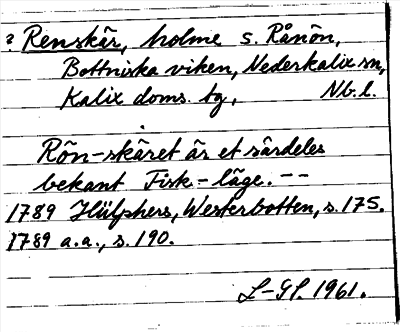 ? Renskär, holme s. Rånön,
Bottniska viken, Nederkalix sn,
Kalix doms. tg, Nb. l.
Rön-skäret är et särdeles
bekant Fisk-läge. --
1789 Hülphers, Westerbotten, s. 175.
1789 a.a., s. 190.
L-GL. 1961.